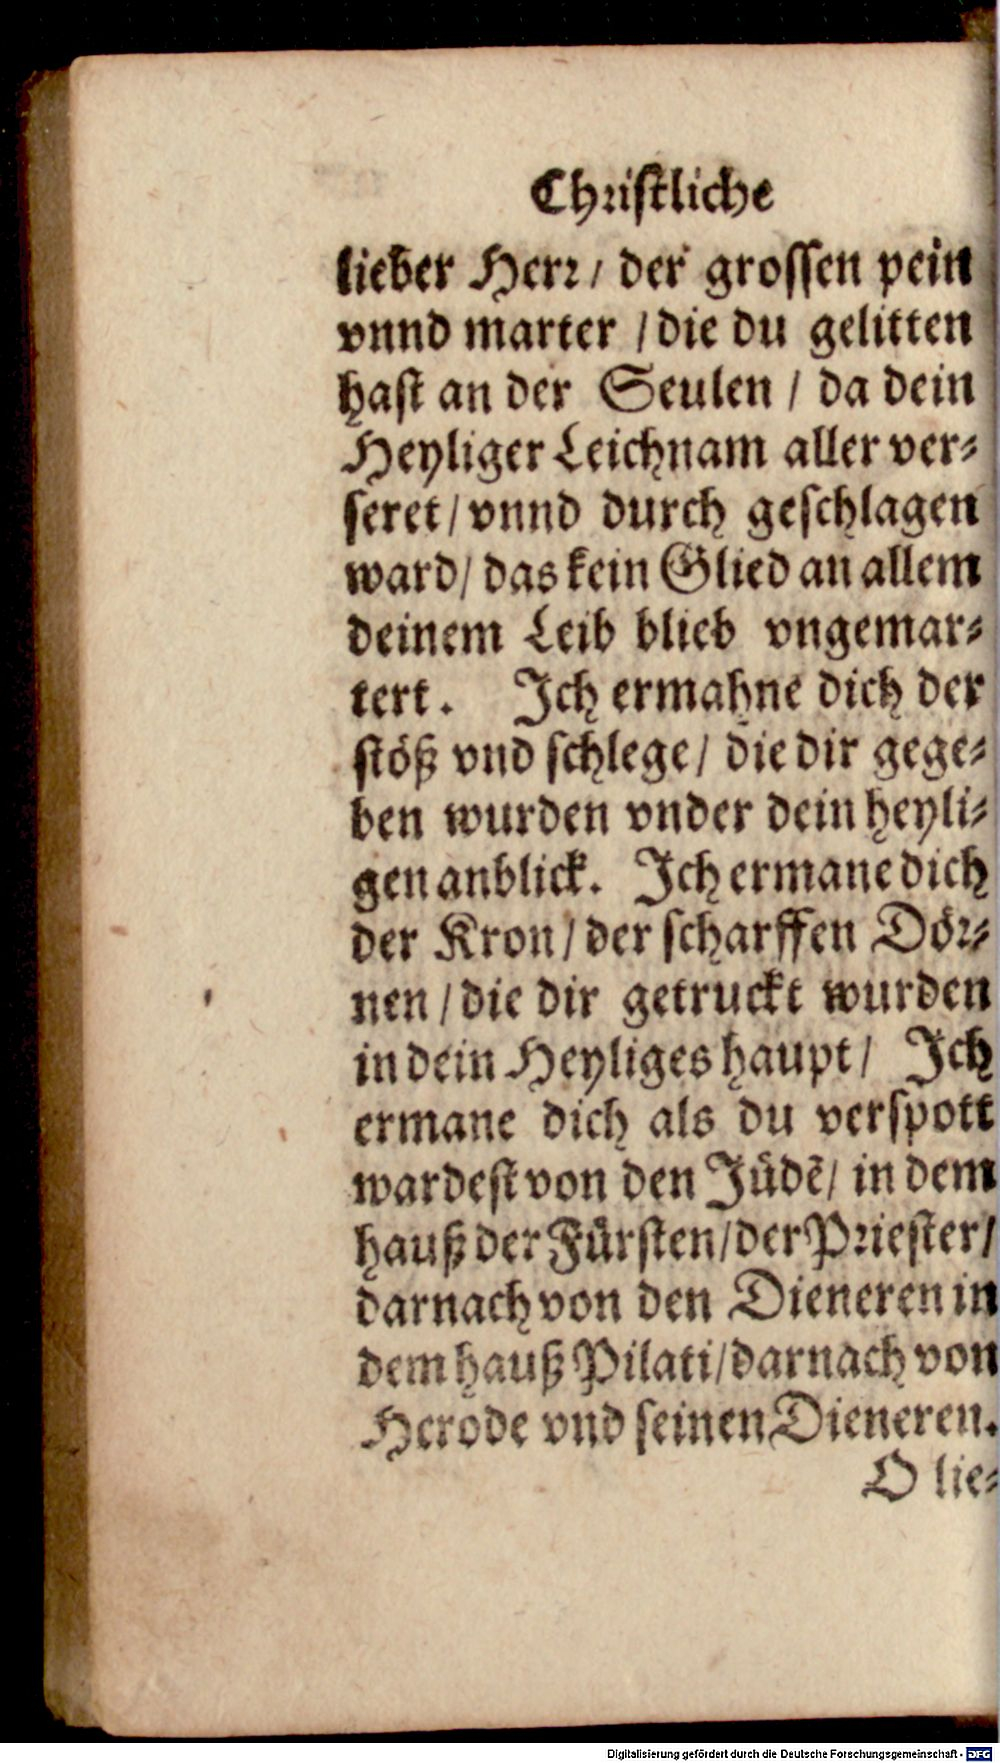 Christliche
lieber Herr / der grossen pein
vnnd marter / die du gelitten
hast an der Seulen / da dein
Heyliger Leichnam aller ver-
seret / vnnd durch geschlagen
ward / das kein Glied an allem
deinem Leib blieb vngemar-
tert. Ich ermahne dich der
stöß vnd schlege / die dir gege-
ben wurden vnder dein heyli-
gen anblick. Ich ermane dich
der Kron / der scharffen Dör-
nen / die dir getruckt wurden
in dein Heyliges haupt / Ich
ermane dich als du verspott
wardest von den Jüdẽ / in dem
hauß der Fürsten / der Priester /
darnach von den Dieneren in
dem hauß Pilati / darnach von
Herode vnd seinen Dieneren.
O lie-
Digitalisierung gefördert durch die Deutsche Forschungsgemeinschaft - DFG